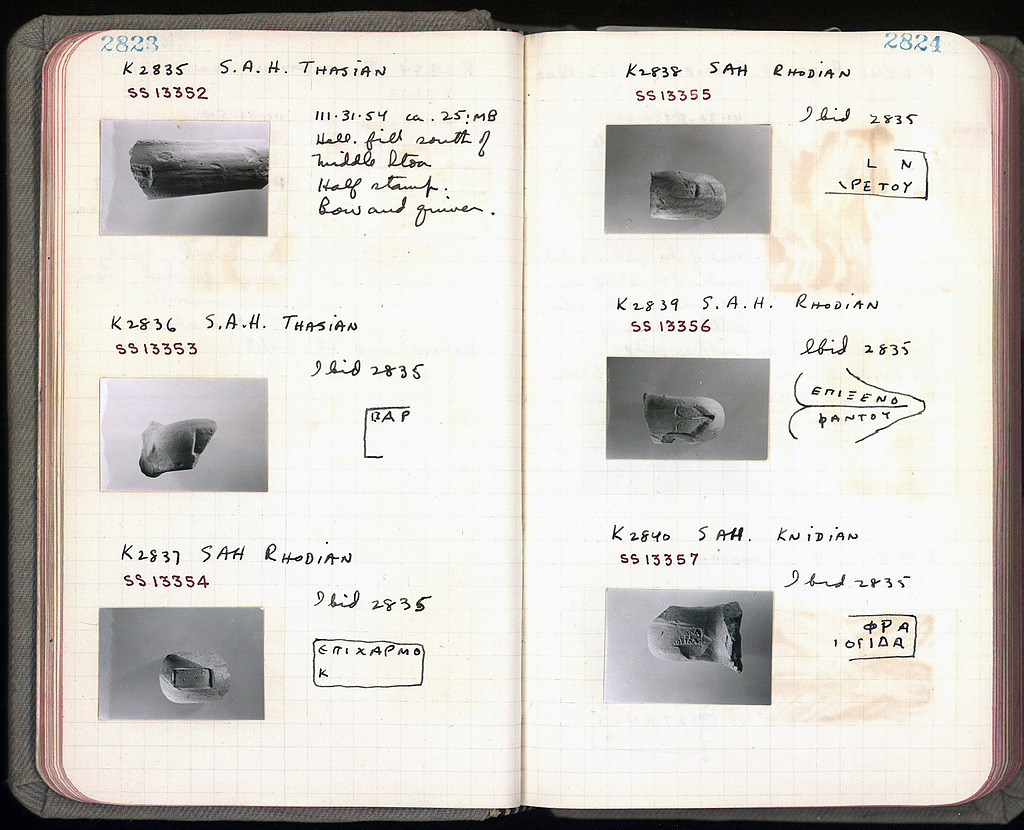 2823
K2835 S.A.H. THASIAN
SS 13352
III·31·54 ca. 25:MB
Hell. fill south of
Middle Stoa
Half stamp.
Bow and quiver.
K2836 S.A.H. THASIAN
SS 13353
Ibid 2835
ΒΑΡ
K2837 SAH RHODIAN
SS 13354
Ibid 2835
ΕΠΙΧΑΡΜΟ
Κ
2824
K2838 SAH RHODIAN
SS 13355
Ibid 2835
L Ν
\ΡΕΤΟΥ
K2839 S.A.H. RHODIAN
SS 13356
Ibid 2835
ΕΠΙΞΕΝΟ
ΦΑΝΤΟΥ
K2840 SAH. KNIDIAN
SS 13357
Ibid 2835
ΦΡΑ
ΙΟΓΙΔΑ